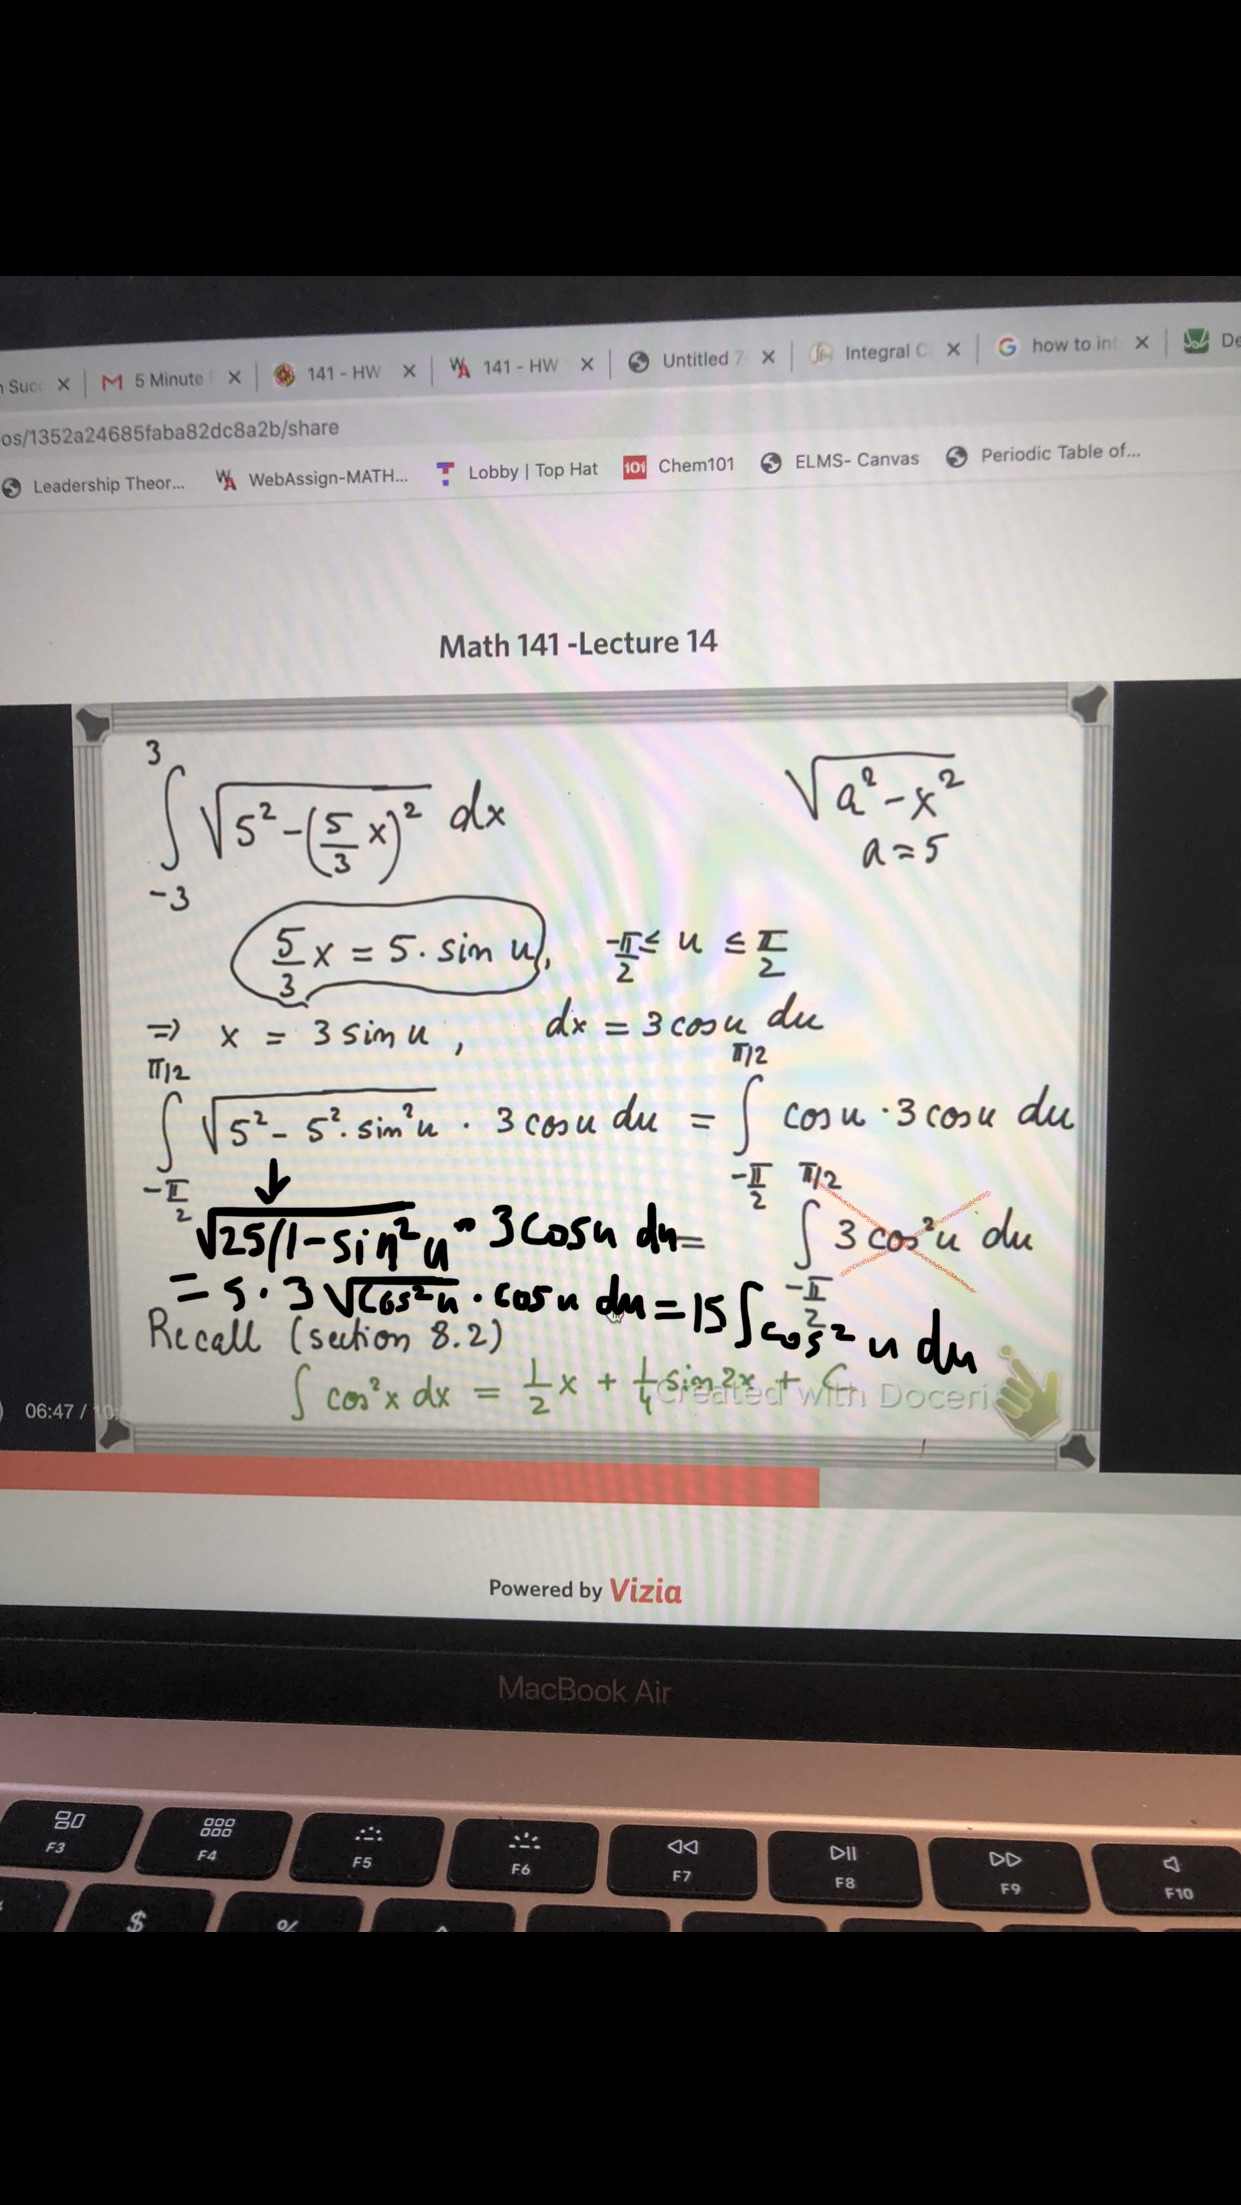 Succ × M 5 Minute × 141 - HW × 141 - HW × Untitled 7 × Integral C × G how to in × De
os/1352a24685faba82dc8a2b/share
Leadership Theor... WebAssign-MATH... Lobby | Top Hat 101 Chem101 ELMS- Canvas Periodic Table of...
Math 141 -Lecture 14
∫_{-3}^{3} √(5² - (5/3 x)²) dx √(a² - x²)
a = 5
5/3 x = 5 · sin u, -π/2 ≤ u ≤ π/2
⇒ x = 3 sin u, dx = 3 cos u du
∫_{-π/2}^{π/2} √(5² - 5² · sin² u) · 3 cos u du = ∫_{-π/2}^{π/2} cos u · 3 cos u du
↓
√25(1-sin² u · 3 cos u du = ∫_{-π/2}^{π/2} 3 cos² u du
= 5 · 3 √cos² u · cos u du = 15 ∫ cos² u du
Recall (section 8.2)
∫ cos² x dx = 1/2 x + 1/4 sin 2x + C
Created with Doceri
06:47 / 10
Powered by Vizia
MacBook Air
F3 F4 F5 F6 F7 F8 F9 F10
$ % ^